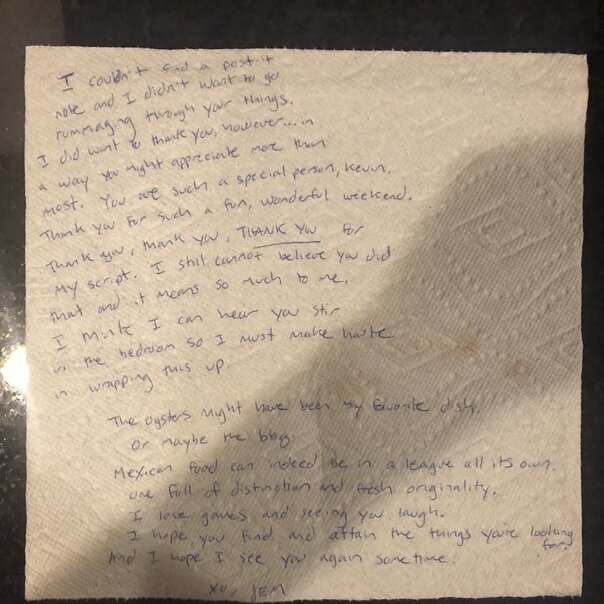 I couldn't find a post-it
note and I didn't want to go
rummaging through your things.
I did want to thank you, however... in
a way you might appreciate more than
most. You are such a special person, Kevin.
Thank you for such a fun, wonderful weekend.
Thank you, thank you, THANK YOU for
my script. I still cannot believe you did
that and it means so much to me.
I think I can hear you stir
in the bedroom so I must make haste
in wrapping this up.
The oysters might have been my favorite dish.
Or maybe the bbq.
Mexican food can indeed be in a league all its own.
One full of distinction and fresh originality.
I love games and seeing you laugh.
I hope you find and attain the things you're looking
for.
And I hope I see you again sometime.
XO, JEM